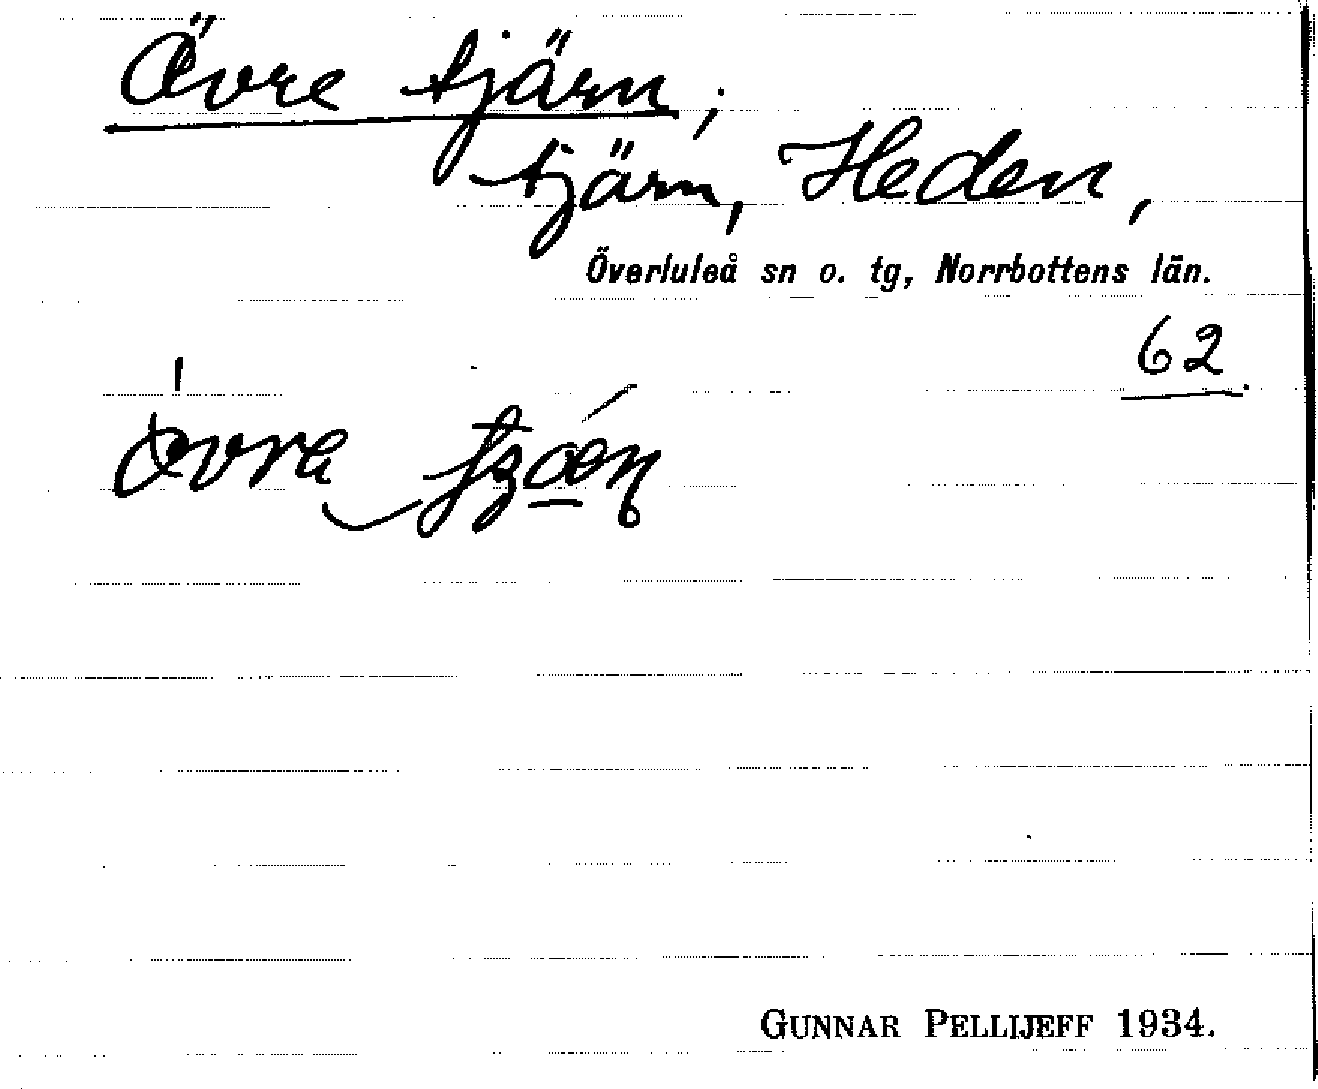 Övre tjärn,
tjärn, Heden,
Överluleå sn o. tg, Norrbottens län.
62
GUNNAR PELLIJEFF 1934.